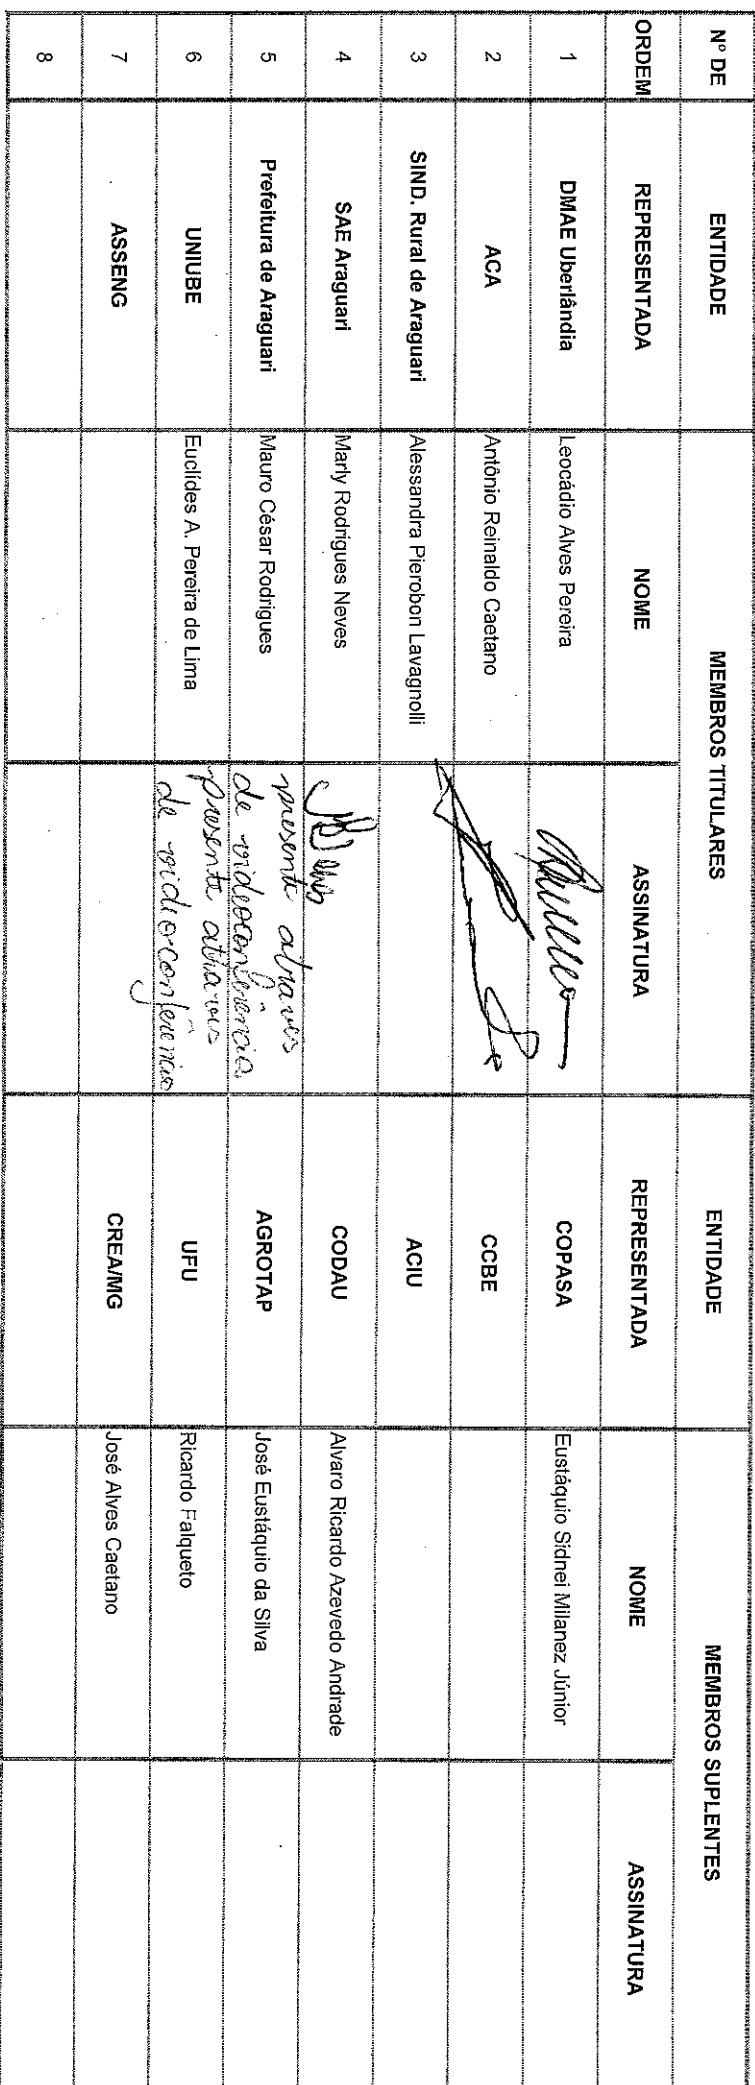 Nº DE ORDEM
ENTIDADE REPRESENTADA
MEMBROS TITULARES
NOME
ASSINATURA
ENTIDADE REPRESENTADA
MEMBROS SUPLENTES
NOME
ASSINATURA
1 DMAE Uberlândia Leocádio Alves Pereira COPASA Eustáquio Sidnei Milanez Júnior
2 ACA Antônio Reinaldo Caetano CCBE
3 SIND. Rural de Araguari Alessandra Pierobon Lavagnolli ACIU
4 SAE Araguari Marly Rodrigues Neves CODAU Alvaro Ricardo Azevedo Andrade
5 Prefeitura de Araguari Mauro César Rodrigues presente atraves de videoconferência AGROTAP José Eustáquio da Silva
6 UNIUBE Euclídes A. Pereira de Lima presente atraves de videoconferência UFU Ricardo Falqueto
7 ASSENG CREA/MG José Alves Caetano
8